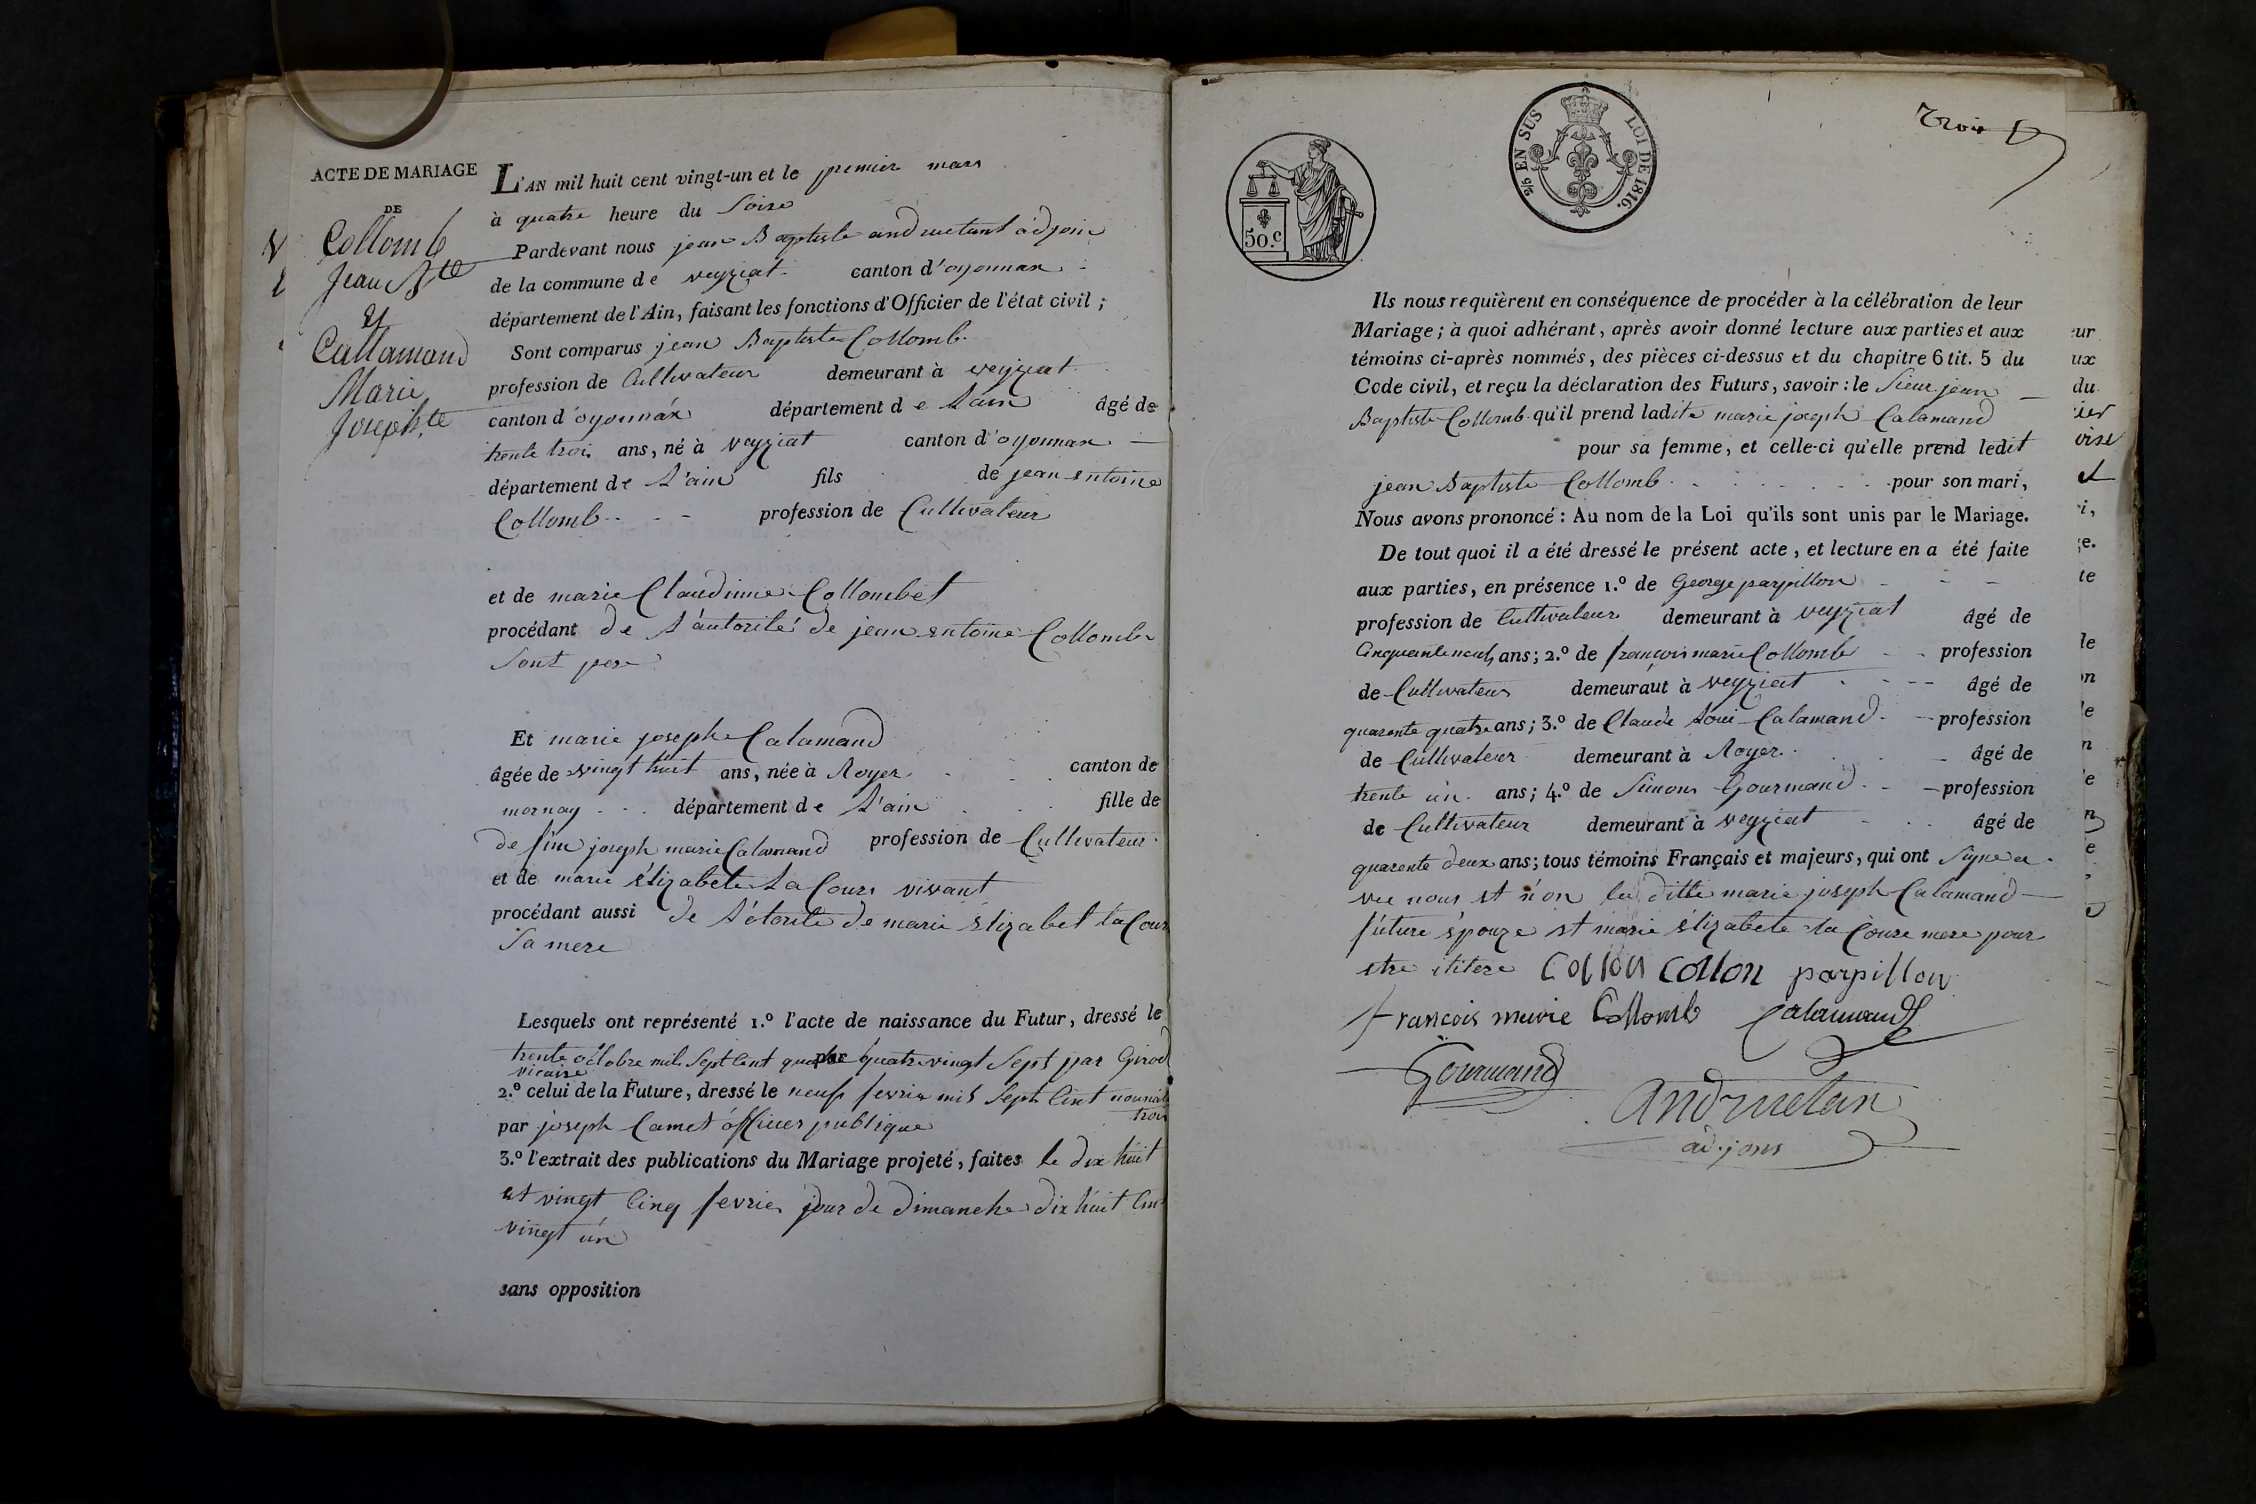 ACTE DE MARIAGE
DE
Collomb
Jean Bte
Et
Callamand
Marie
Josephte
L'AN mil huit cent vingt-un et le premier mars
à quatre heure du Soire
Pardevant nous jean Baptiste andruetant adjoin
de la commune de veyziat canton d'oyonnax
département de l'Ain, faisant les fonctions d'Officier de l'état civil ;
Sont comparus jean Baptiste Collomb
profession de Cultivateur demeurant à veyziat
canton d'oyonnax département de L'ain âgé de
trente trois ans, né à veyziat canton d'oyonnax
département de L'ain fils de jean entoine
Collomb profession de Cultivateur
et de marie Claudinne Collombet
procédant de L'autorité de jean entoine Collomb
Sont pere
Et marie joseph Calamand
âgée de vingt huit ans, née à Royer canton de
mornay département de L'ain fille de
de fun joseph marie Calamand profession de Cultivateur
et de marie élizabete La Cour vivant
procédant aussi de L'étorite de marie élizabet la Cour
Sa mere
Lesquels ont représenté 1.º l'acte de naissance du Futur, dressé le
trente octobre mil Sept Cent quatre par quatre vingt Sept par Girod
vicaire
2.º celui de la Future, dressé le neuf fevrie mil Sept Cent
trois
par joseph Camet officier publique
3.º l'extrait des publications du Mariage projeté, faites le dix huit
et vingt Cinq fevrier jour de dimanche dix huit Cen
vingt un
sans opposition
EN SUS LOI DE 1816.
50.c
Trois
Ils nous requièrent en conséquence de procéder à la célébration de leur
Mariage ; à quoi adhérant, après avoir donné lecture aux parties et aux
témoins ci-après nommés, des pièces ci-dessus et du chapitre 6 tit. 5 du
Code civil, et reçu la déclaration des Futurs, savoir : le Sieur jean
Baptiste Collomb qu'il prend ladite marie joseph Calamand
pour sa femme, et celle-ci qu'elle prend ledit
jean Baptiste Collomb pour son mari,
Nous avons prononcé : Au nom de la Loi qu'ils sont unis par le Mariage.
De tout quoi il a été dressé le présent acte, et lecture en a été faite
aux parties, en présence 1.º de George parpillon
profession de Cultivateur demeurant à veyziat âgé de
Cinquante neuf ans ; 2.º de françois marie Collomb profession
de Cultivateur demeuraut à veyziat âgé de
quarente quatre ans ; 3.º de Claude Loui Calamand profession
de Cultivateur demeurant à Royer âgé de
trente un ans ; 4.º de Simon Gourmand profession
de Cultivateur demeurant à veyziat âgé de
quarente deux ans ; tous témoins Français et majeurs, qui ont Signe a
vec nous et n'on la ditte marie joseph Calamand
future épouze et marie élizabete la Coure mere pour
etre ilitere Collon Collon parpillon
francois marie Collomb Calamand
Gourmand
andruetan
adjoin